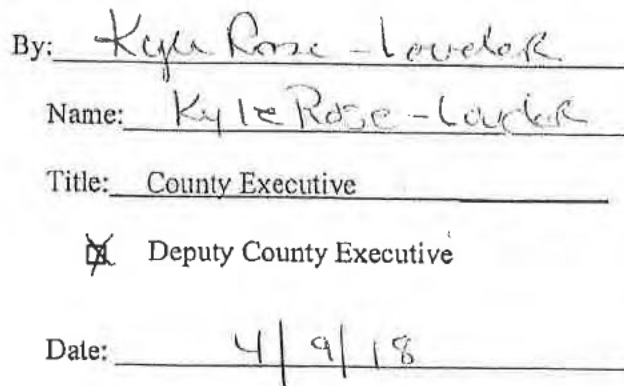 By: Kyle Rose-Louder
Name: Kyle Rose-Louder
Title: County Executive
☒ Deputy County Executive
Date: 4/9/18